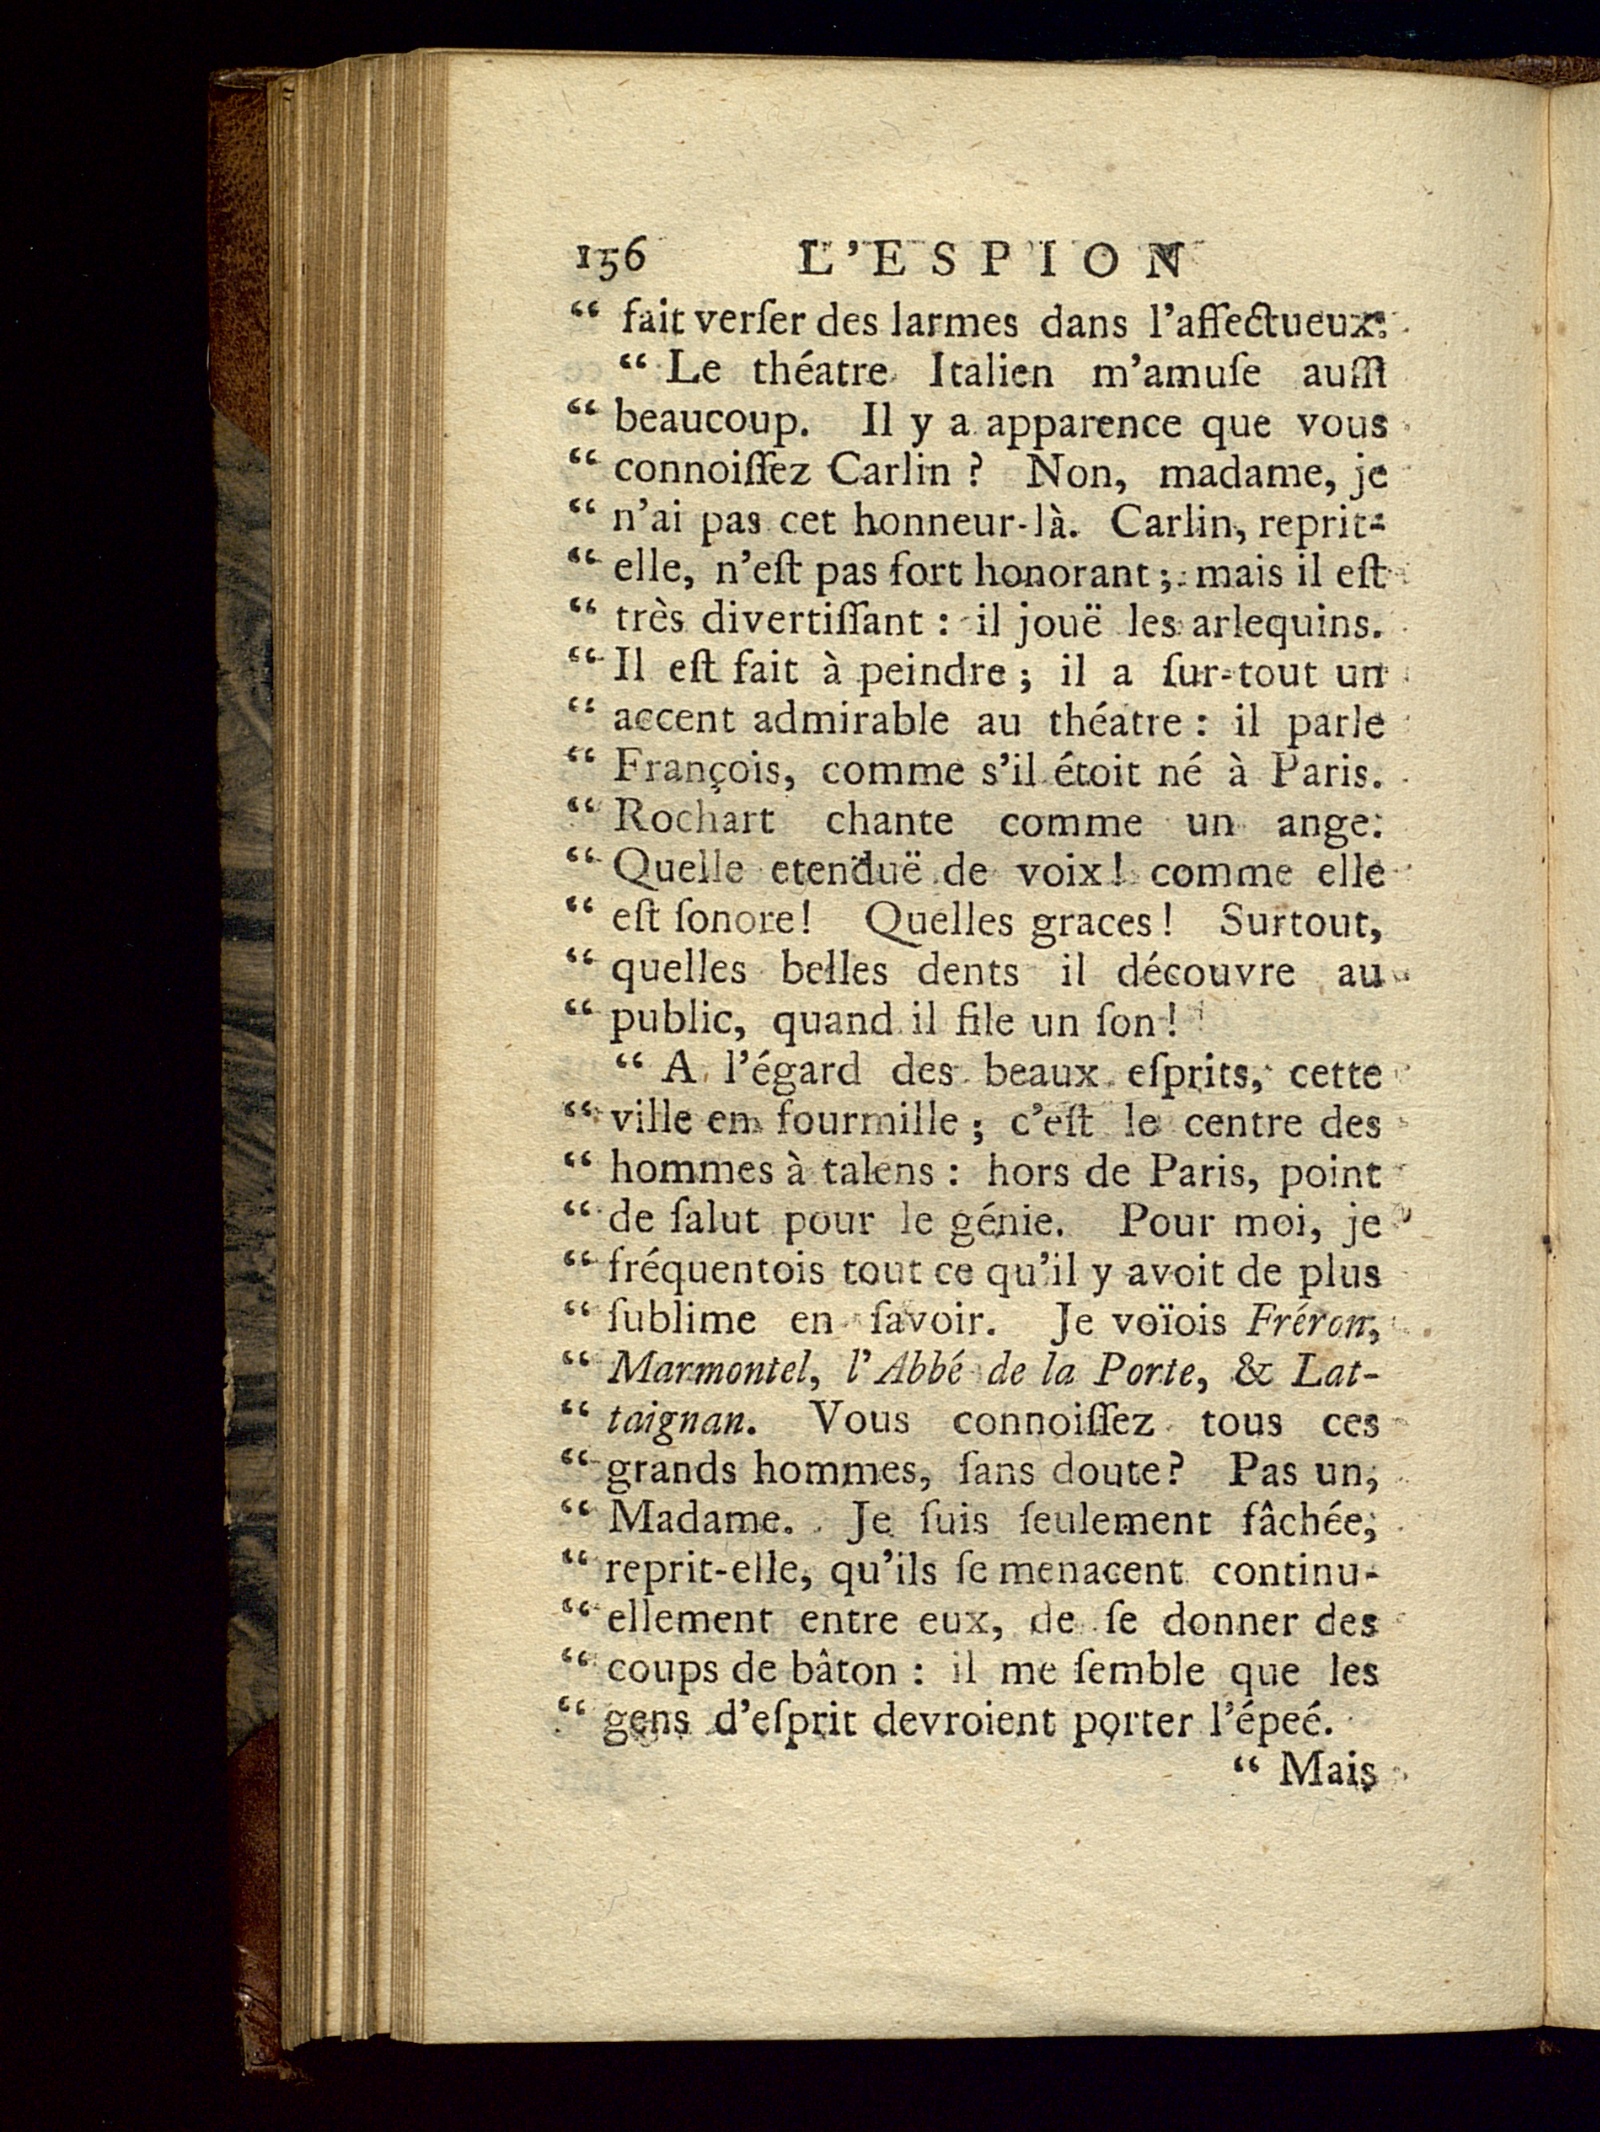 156 L'ESPION
“ fait verſer des larmes dans l'affectueux.
“ Le théatre Italien m'amuſe auſſi
“ beaucoup. Il y a apparence que vous
“ connoiſſez Carlin ? Non, madame, je
“ n'ai pas cet honneur-là. Carlin, reprit-
“ elle, n'eſt pas fort honorant ; mais il eſt
“ très divertiſſant : il jouë les arlequins.
“ Il eſt fait à peindre ; il a ſur-tout un
“ accent admirable au théatre : il parle
“ François, comme s'il étoit né à Paris.
“ Rochart chante comme un ange:
“ Quelle etenduë de voix ! comme elle
“ eſt ſonore! Quelles graces ! Surtout,
“ quelles belles dents il découvre au
“ public, quand il file un ſon !
“ A l'égard des beaux eſprits, cette
“ ville en fourmille ; c'eſt le centre des
“ hommes à talens : hors de Paris, point
“ de ſalut pour le génie. Pour moi, je
“ fréquentois tout ce qu'il y avoit de plus
“ ſublime en ſavoir. Je voïois Fréron,
“ Marmontel, l'Abbé de la Porte, & Lat-
“ taignan. Vous connoiſſez tous ces
“ grands hommes, ſans doute? Pas un,
“ Madame. Je ſuis ſeulement fâchée,
“ reprit-elle, qu'ils ſe menacent continu-
“ ellement entre eux, de ſe donner des
“ coups de bâton : il me ſemble que les
“ gens d'eſprit devroient porter l'épeé.
“ Mais